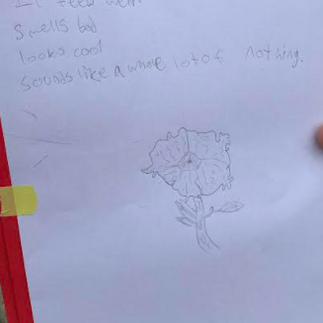 It feels
Smells bad
looks cool
Sounds like a whole lot of nothing.